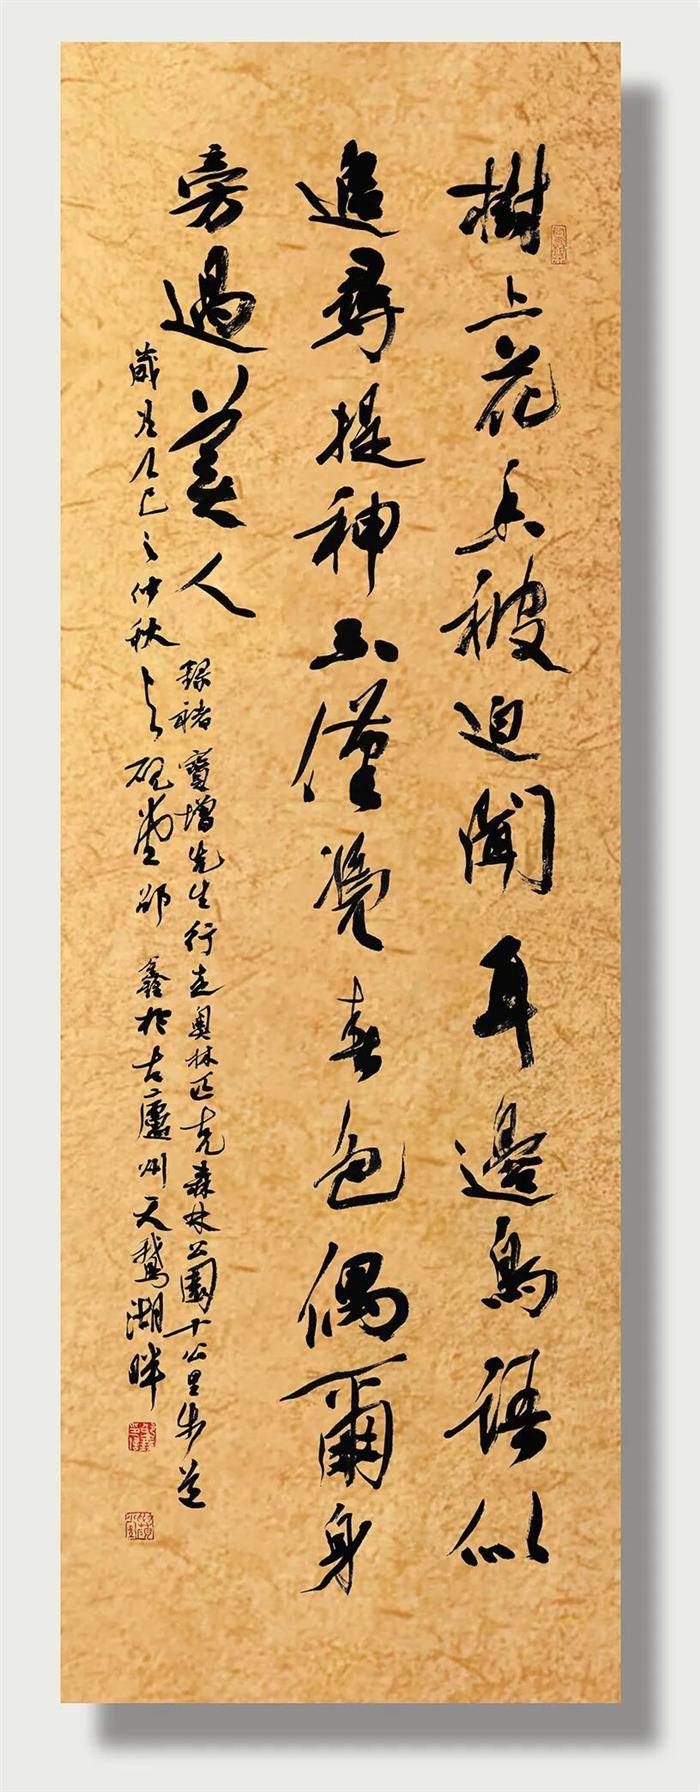 樹上花香被迫聞耳邊鳥語似
追尋提神不僅覺春色偶爾身
旁過美人
録褚寶增先生行走奧林匹克森林公園十公里步道
歲乙巳之仲秋硯堂邵鑫於古廬州天鵝湖畔